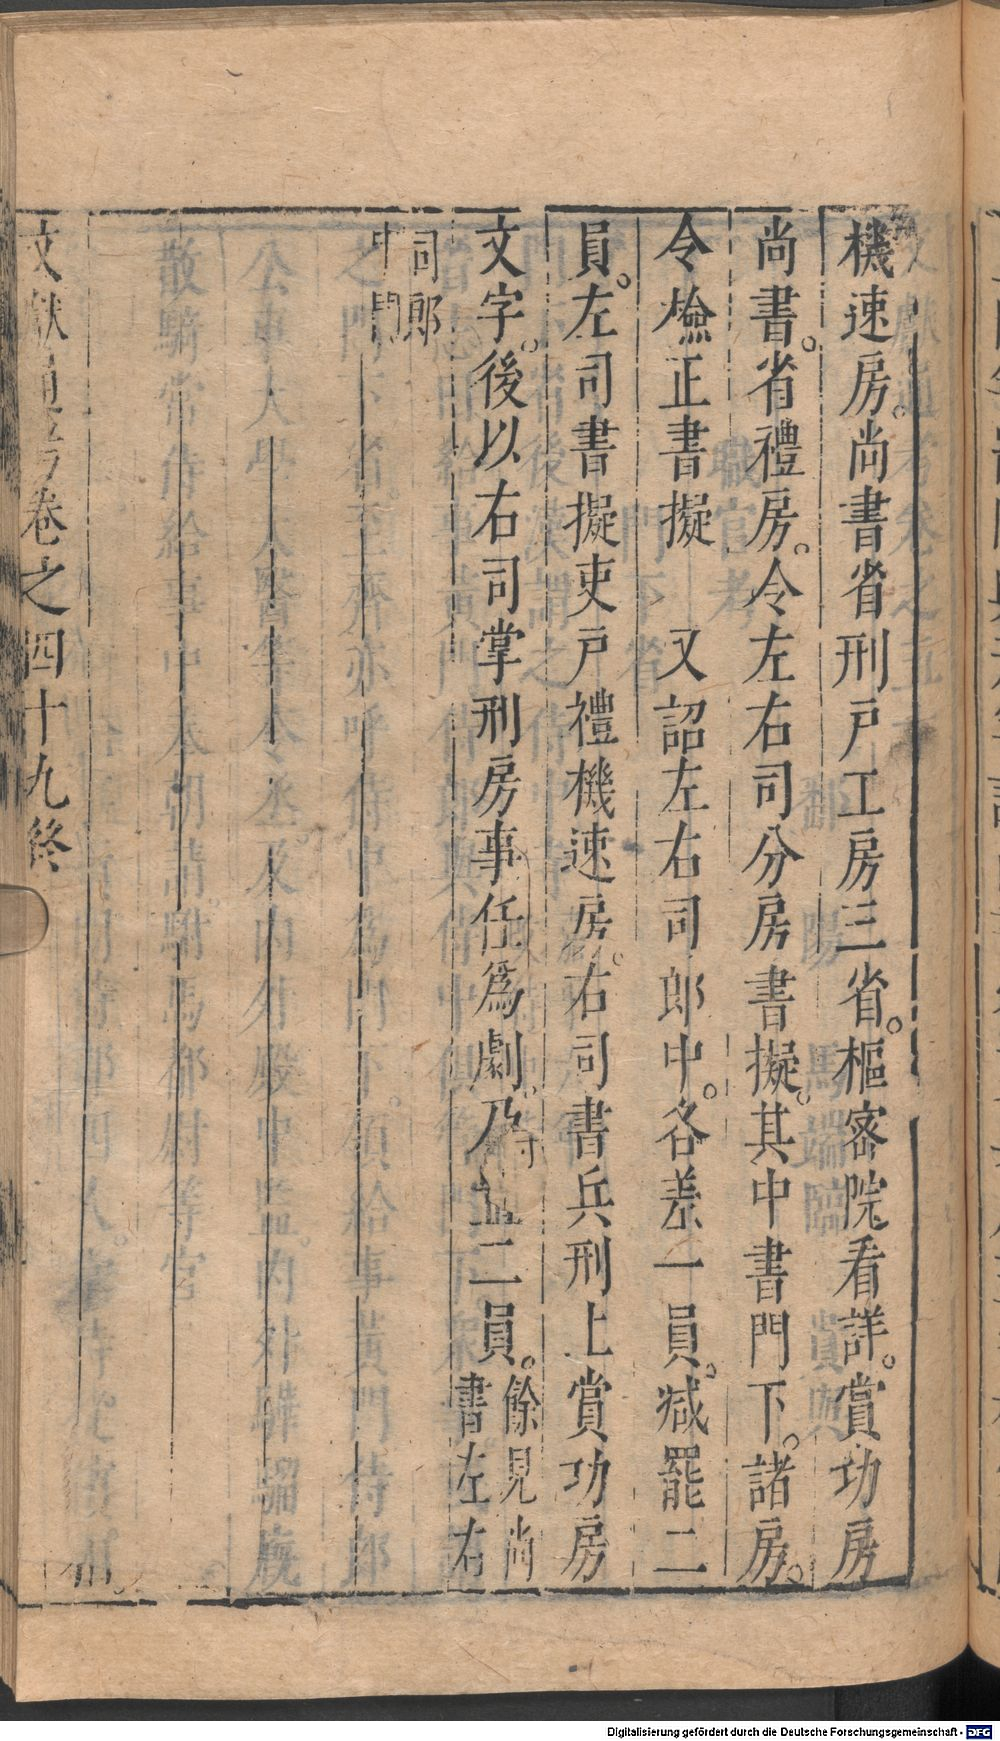 機速房。尚書省刑戸工房三省。樞密院看詳。賞功房
尚書。省禮房。令左右司分房書擬。其中書門下。諸房。
令檢正書擬　又詔左右司郎中。各差一員。減罷二
員。左司書擬吏戸禮機速房。右司書兵刑上賞功房
文字。後以右司掌刑房事任爲劇。乃並二員。餘見尚
書左右
司郎
中門
文獻通考卷之四十九終
Digitalisierung gefördert durch die Deutsche Forschungsgemeinschaft - DFG